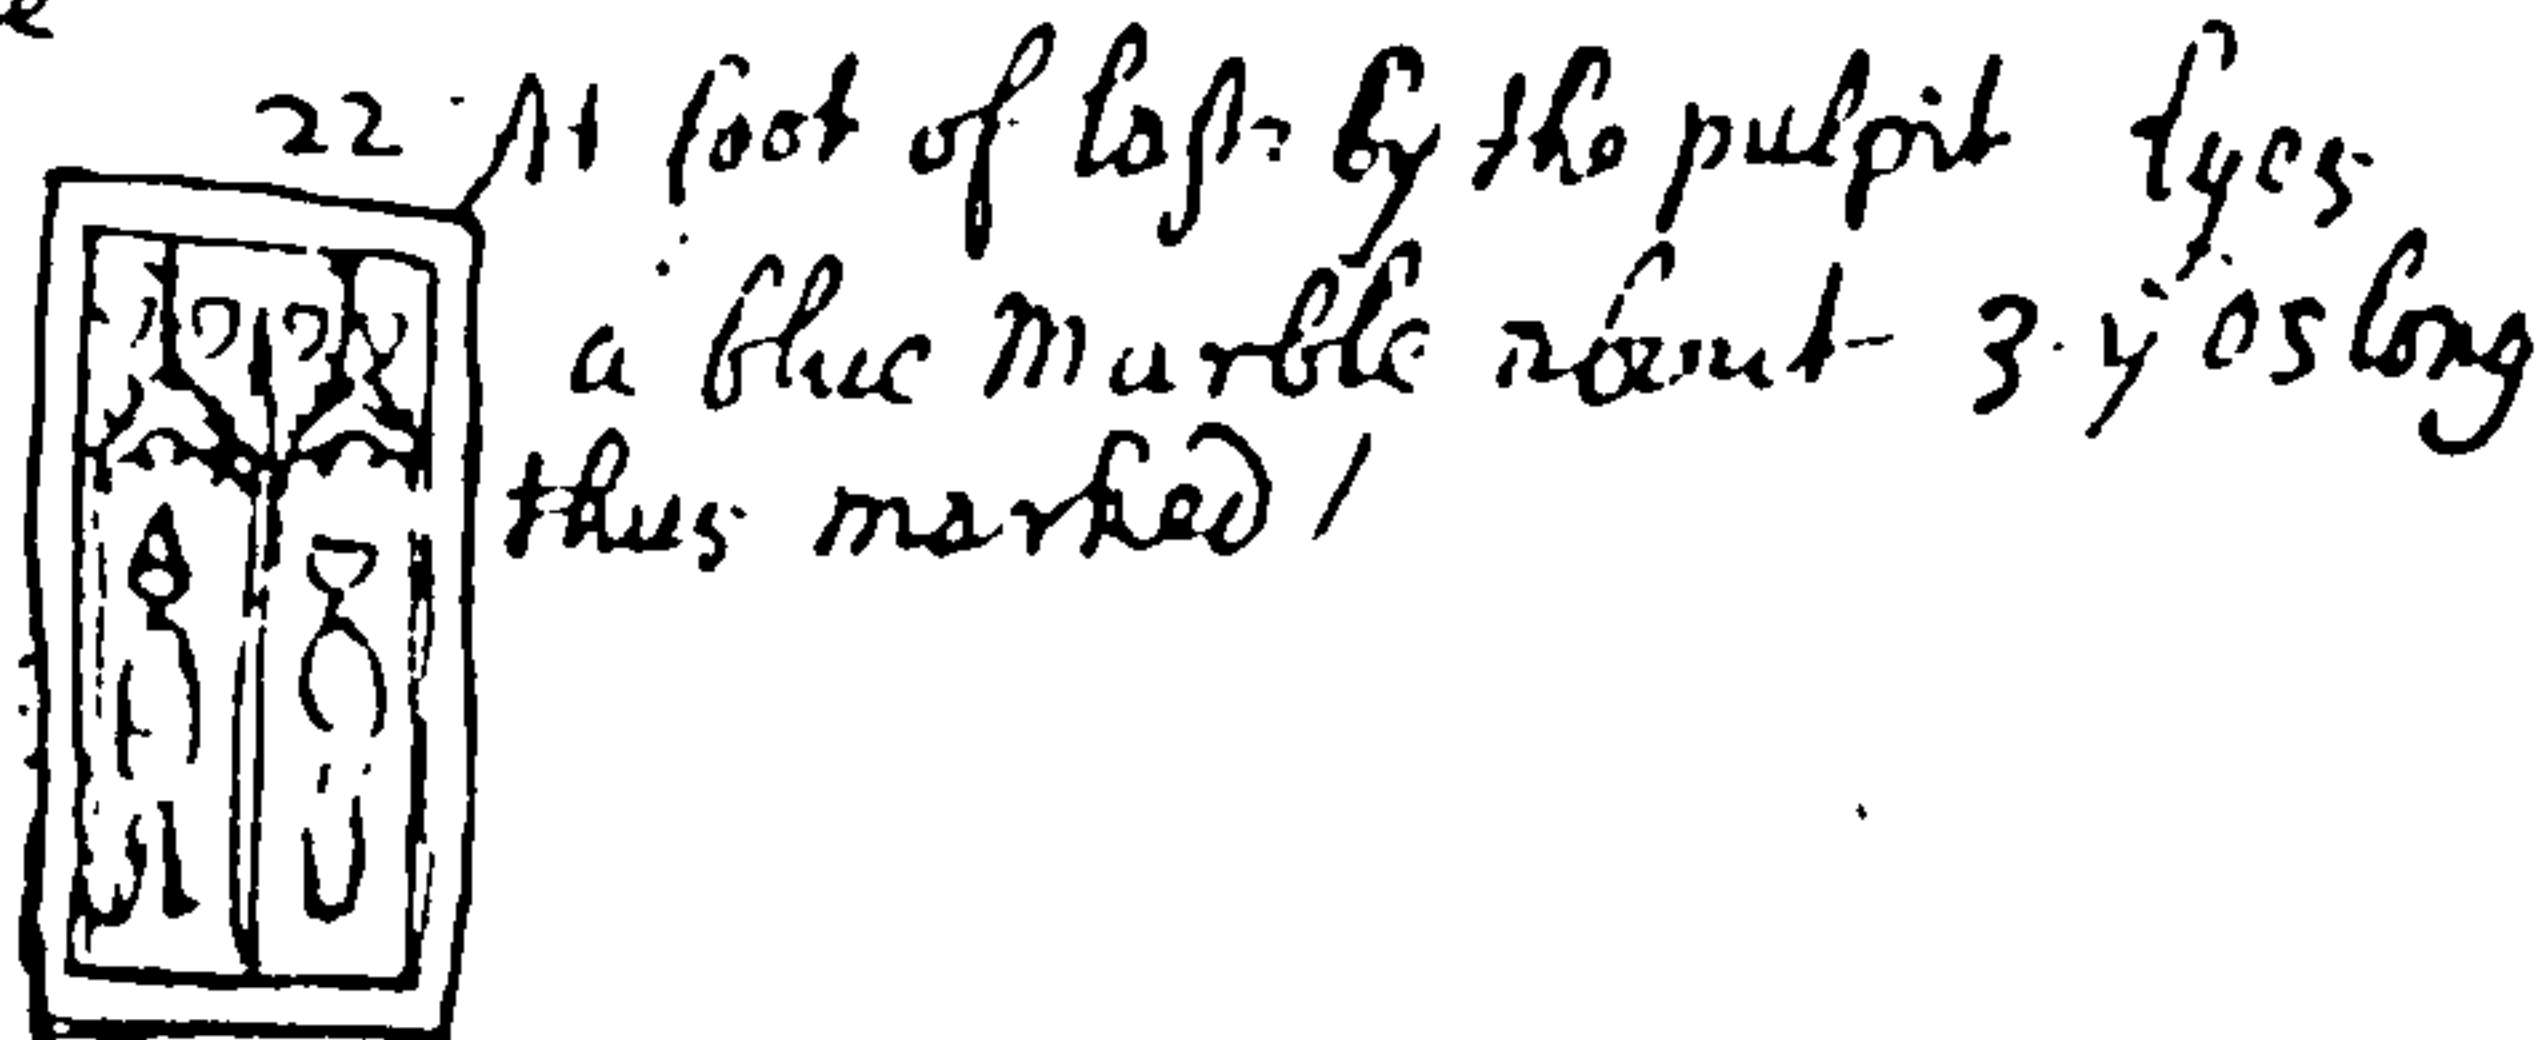 22 At foot of last by the pulpit lyes
a blue Marble about 3 yds long
thus marked /